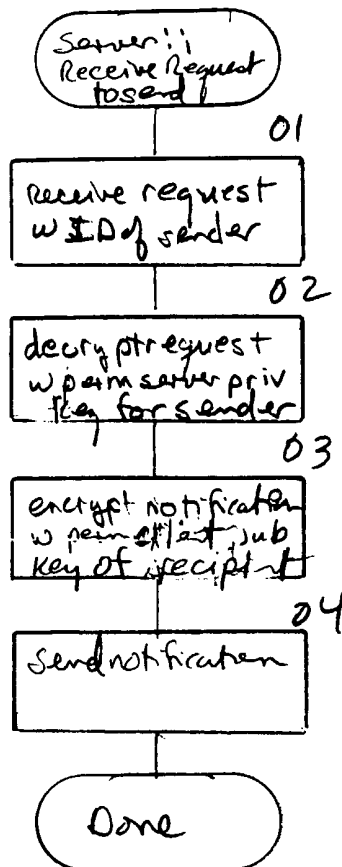 Server::
Receive Request
to send
01
receive request
w ID of sender
02
decrypt request
w perm server priv
key for sender
03
encrypt notification
w perm client pub
key of recipint
04
Send notification
Done